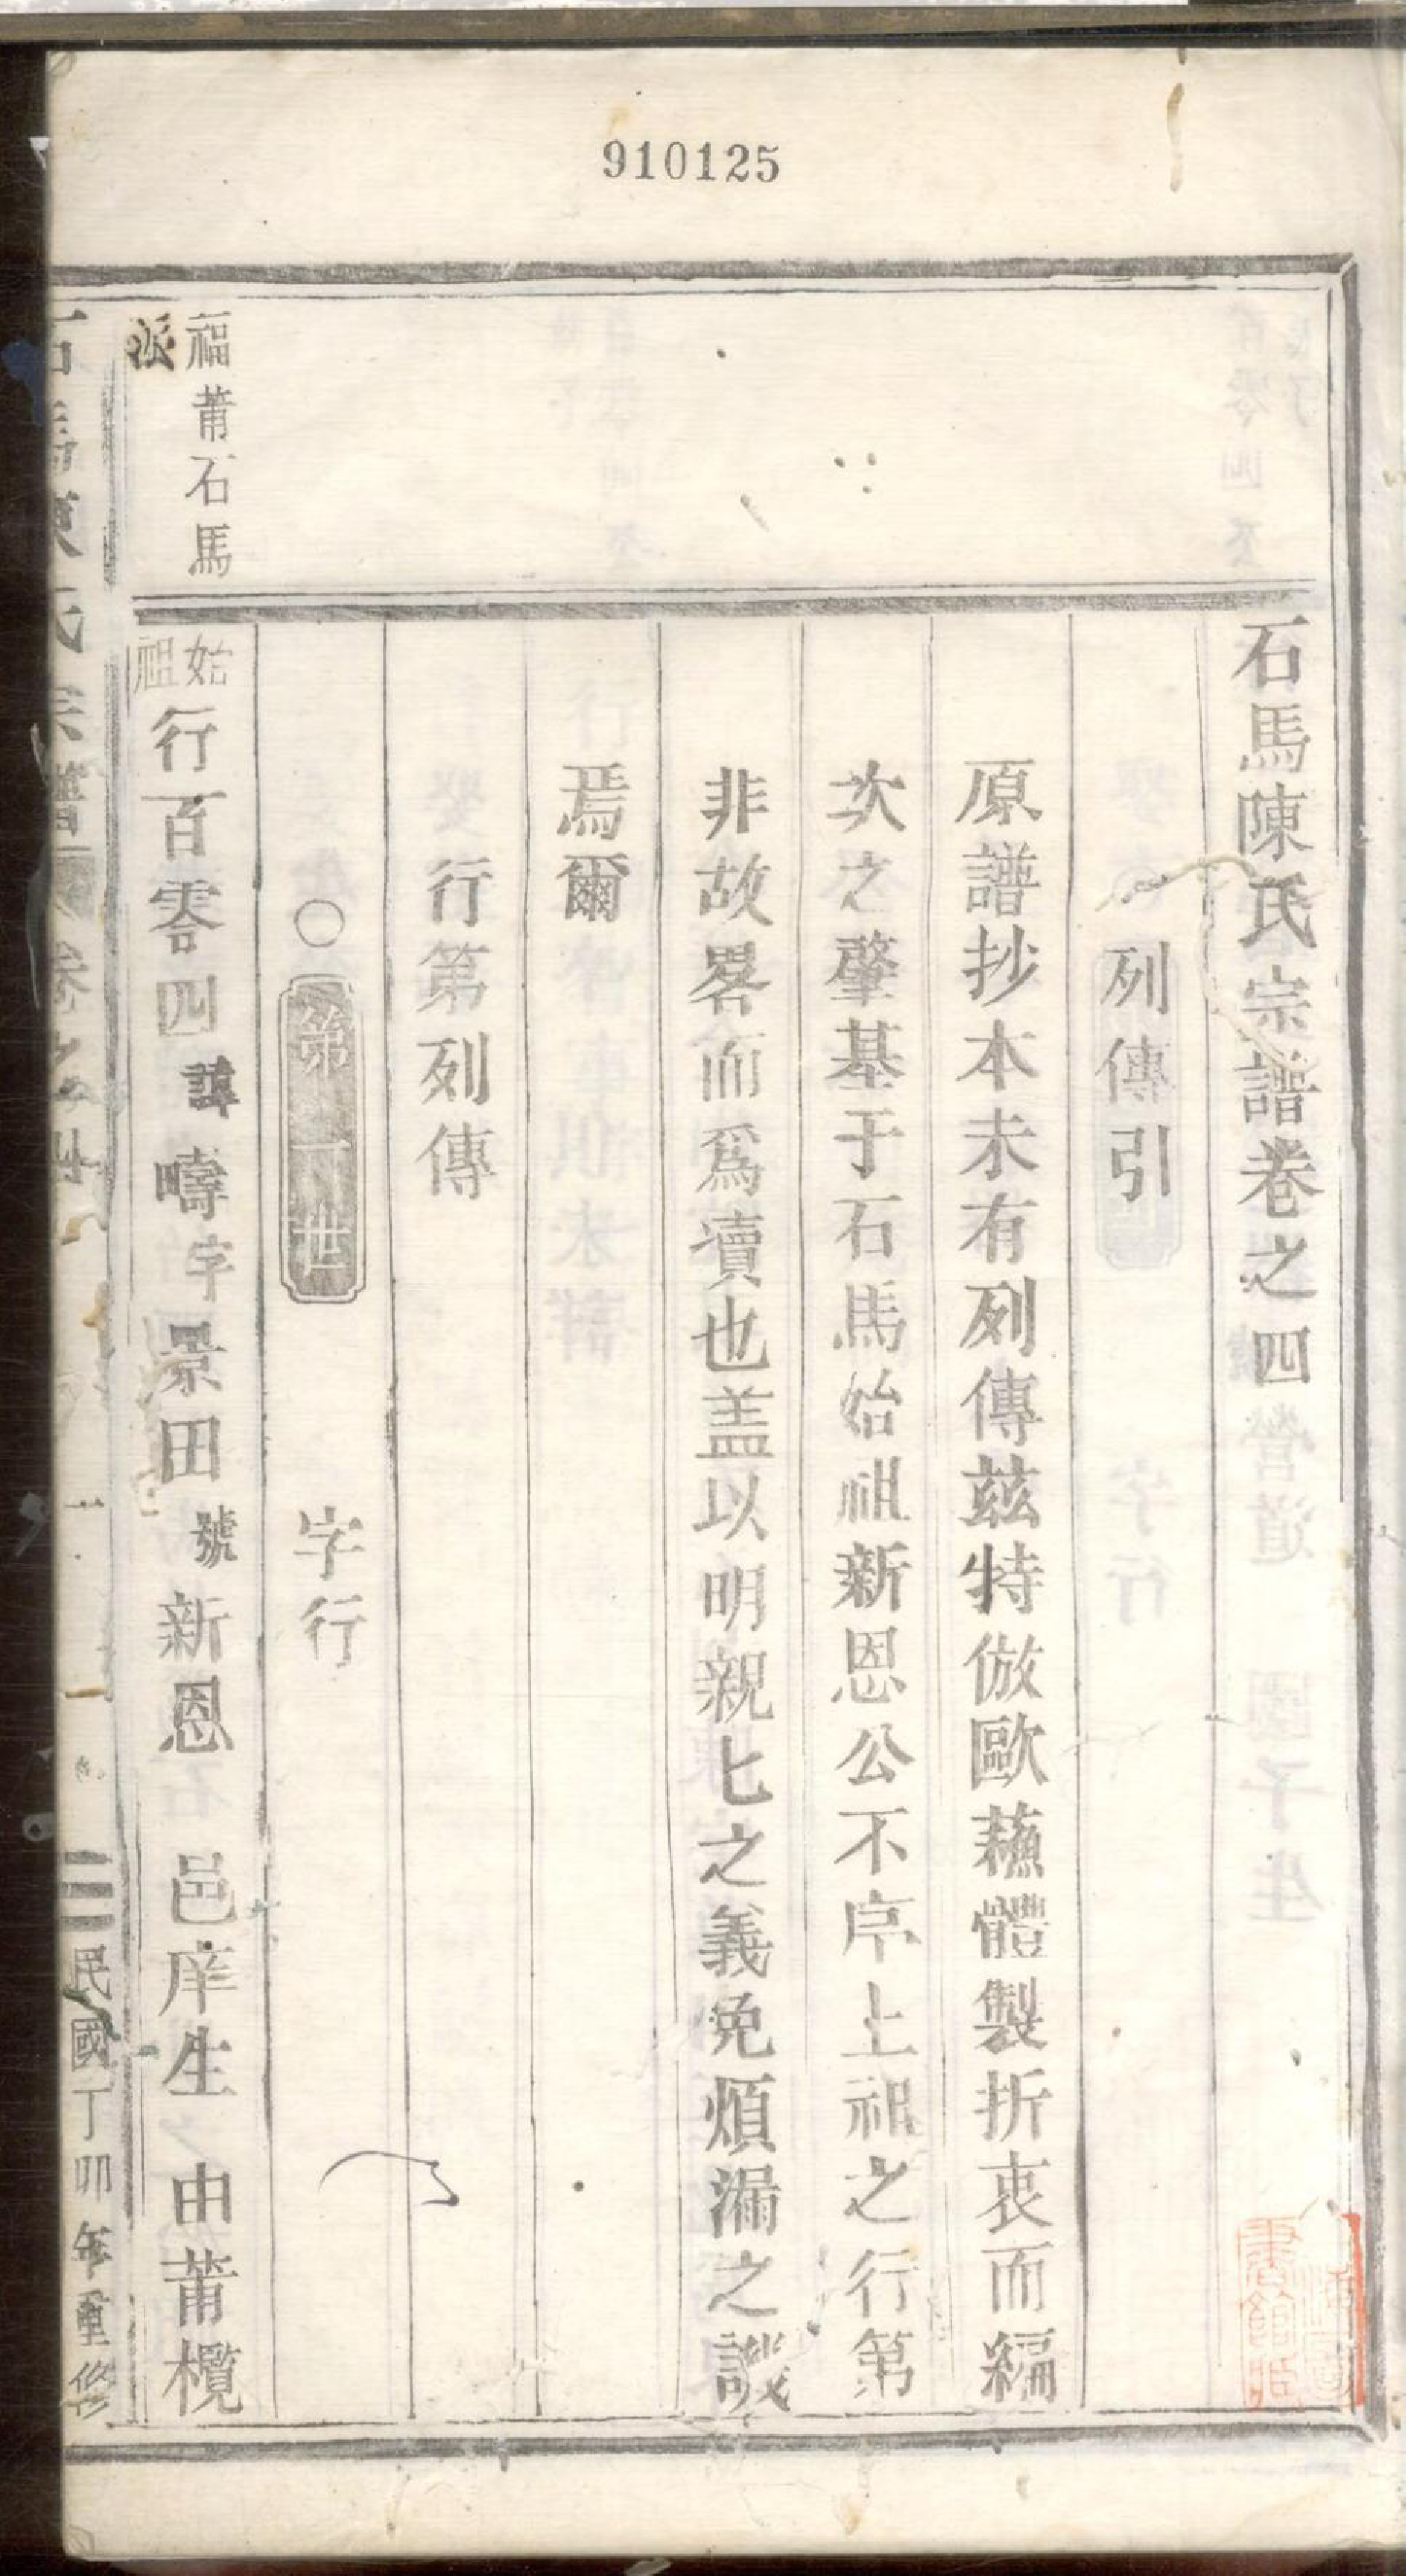 910125
石馬陳氏宗譜卷之四
列傳引
原譜抄本未有列傳茲特倣歐蘓體製折衷而編
次之肇基于石馬始祖新恩公不序上祖之行第
非故畧而爲瀆也盖以明親匕之義免煩漏之譏
焉爾
行第列傳
○第一世 字行
福莆石馬
派
始祖行百零四諱疇字景田號新恩 邑庠生 由莆欖
石馬陳氏宗譜 卷之四 民國丁卯年重修